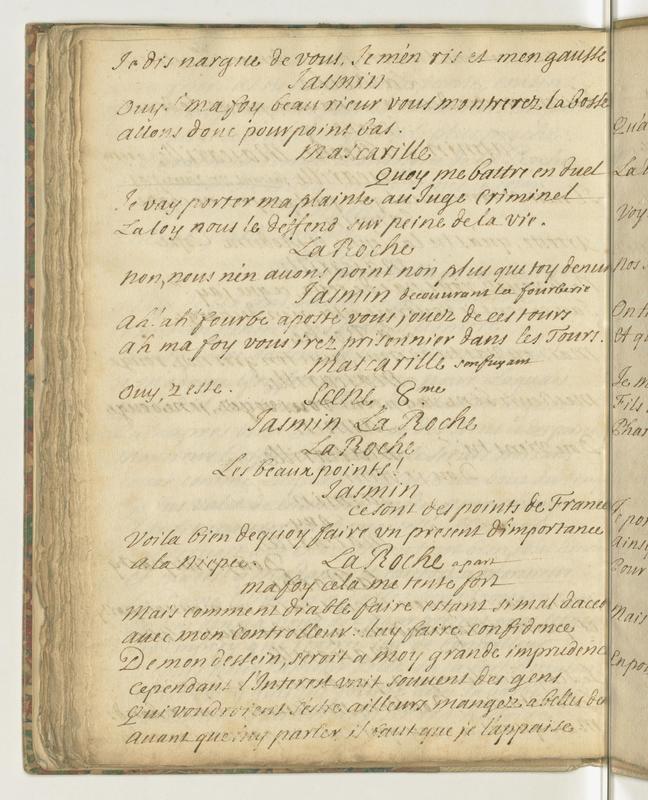 Je dis nargue de vous. Je m'en ris et m'en gausse
Jasmin
Ouy! ma foy beau rieur vous montrerez la bosse
allons donc pourpoint bas.
Mascarille
Quoy me battre en duel
Je vay porter ma plainte au Juge Criminel
La loy nous le deffend sur peine de la vie.
La Roche
Non, nous n'en avons point non plus que toy d'envi
Jasmin decouvrant la fourberie
Ah! ah fourbe aposté vous jouez de ces tours
Ah ma foy vous irez prisonnier dans les Tours.
Mascarille s'enfuyant
Ouy, zeste.
Scene 8me
Jasmin La Roche
La Roche
Les beaux points!
Jasmin
ce sont des points de France
Voila bien dequoy faire un present d'importance
a la Niepce.
La Roche apart
ma foy cela me tente fort
Mais comment diable faire estant si mal dacor
avec mon controlleur: luy faire confidence
De mon dessein, seroit a moy grande imprudenc
Cependant l'Interest unit souvent des gens
Qui voudroient s'estre ailleurs mangez a belles den
Avant que luy parler il faut que je l'appaise
Qu'a
La
Voy
Nos
On
Et q
Je m
Fils
Phar
Je
pou
Ains
Pour
Mais
En po